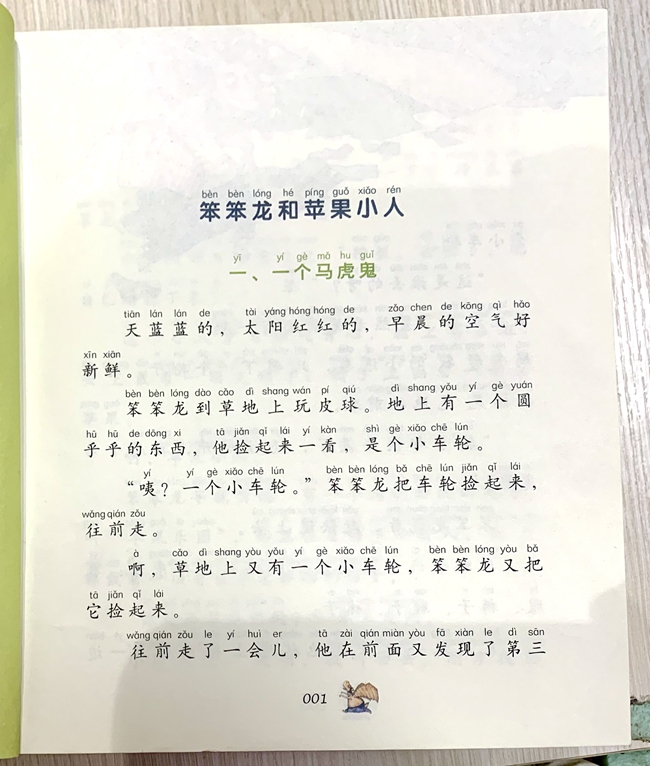 bèn bèn lóng hé píng guǒ xiǎo rén
笨笨龙和苹果小人
yī yí gè mǎ hu guǐ
一、一个马虎鬼
tiān lán lán de tài yáng hóng hóng de zǎo chen de kōng qì hǎo
天蓝蓝的，太阳红红的，早晨的空气好
xīn xiān
新鲜。
bèn bèn lóng dào cǎo dì shang wán pí qiú dì shang yǒu yí gè yuán
笨笨龙到草地上玩皮球。地上有一个圆
hū hū de dōng xi tā jiǎn qǐ lái yí kàn shì gè xiǎo chē lún
乎乎的东西，他捡起来一看，是个小车轮。
yí yí gè xiǎo chē lún bèn bèn lóng bǎ chē lún jiǎn qǐ lái
“咦？一个小车轮。”笨笨龙把车轮捡起来，
wǎng qián zǒu
往前走。
à cǎo dì shang yòu yǒu yí gè xiǎo chē lún bèn bèn lóng yòu bǎ
啊，草地上又有一个小车轮，笨笨龙又把
tā jiǎn qǐ lái
它捡起来。
wǎng qián zǒu le yí huì er tā zài qián miàn yòu fā xiàn le dì sān
往前走了一会儿，他在前面又发现了第三
001